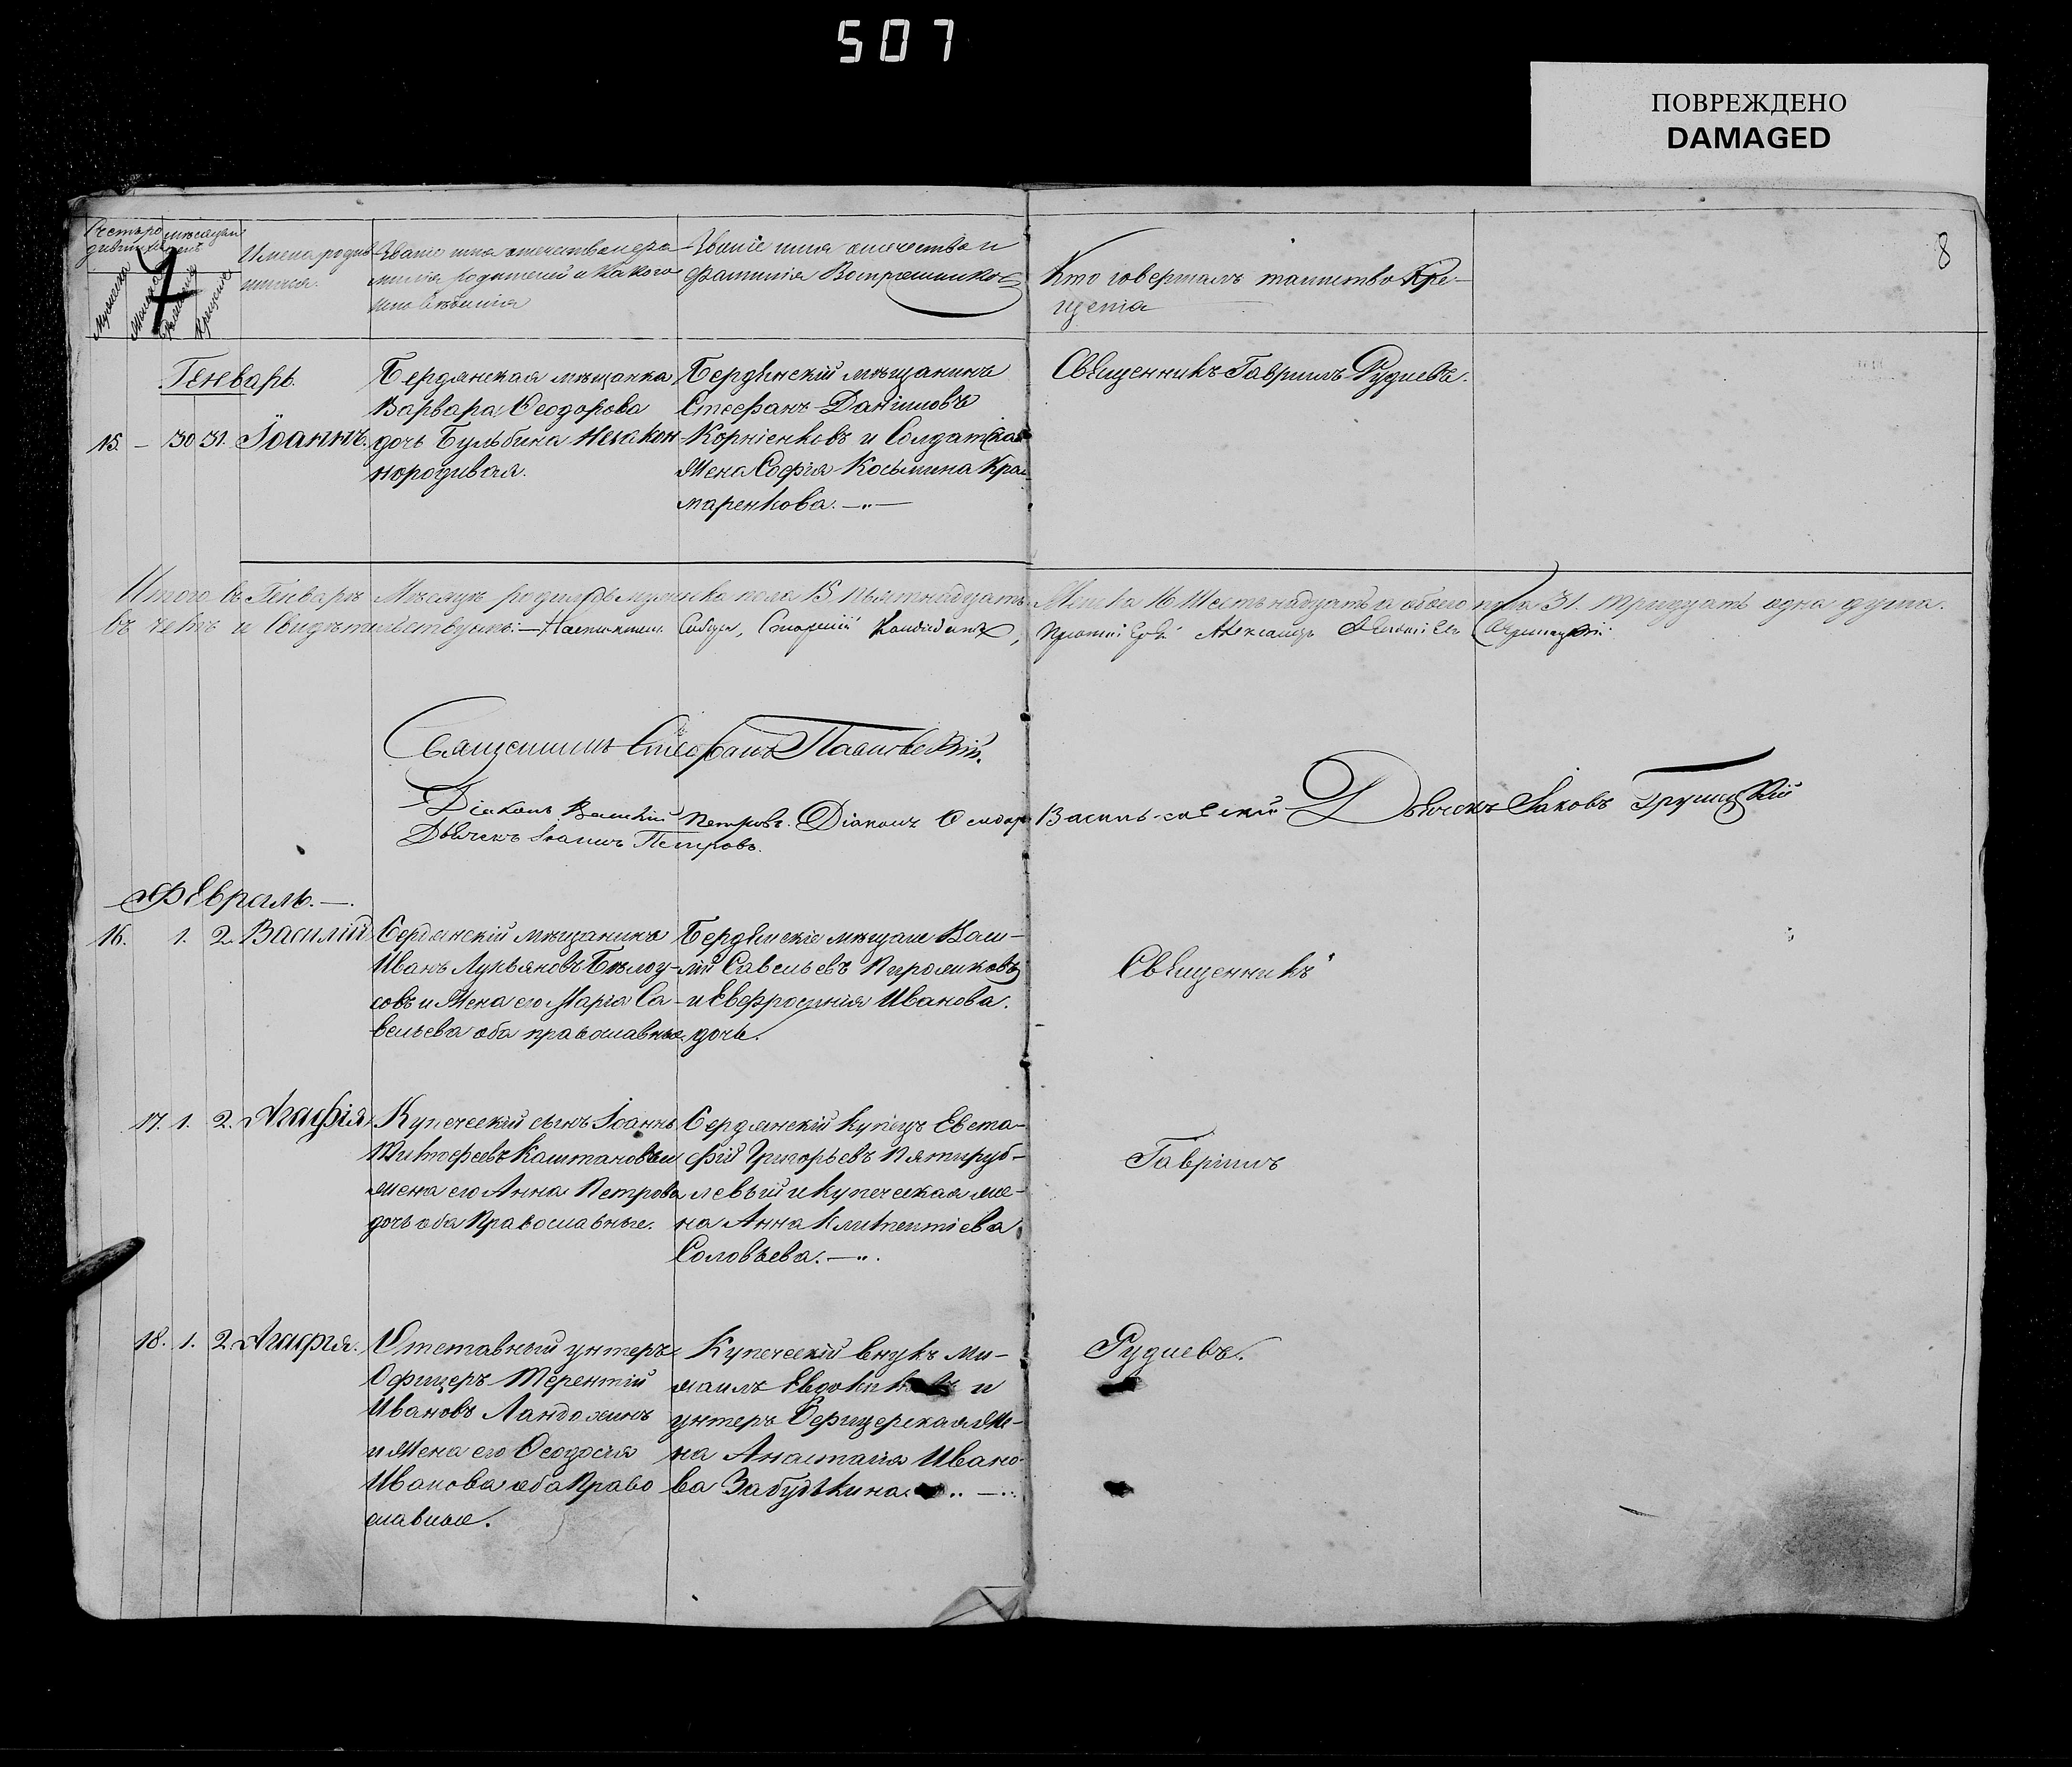 507
ПОВРЕЖДЕНО
DAMAGED
8
Счетъ ро
дившихся
мѣсяцъ и
день
Мужеска
Женска
Рожденія
Крещенія
7
Имена родив
шихся.
Званіе имя отечество и фа
милія родителей и какого
Званіе имя отечество и
фамилія Воспріемниковъ
Кто совершалъ таинство Кре-
щенія
Генварь.
15. — 30 31. Іоаннъ.
Бердянская мѣщанка
Варвара Ѳеодорова
дочь Бульбина незакон
нородивая.
Бердянскій мѣщанинъ
Стефанъ Даніиловъ
Корніенковъ и Солдатская
Жена Софія Косьмина Кра-
маренкова. —„—
Священникъ Гавріилъ Рудневъ.
Итого въ Генварѣ Мѣсяцѣ родилось мужеска пола 15 пьятнадцать Женска 16 Шестьнадцать а обоего пола 31. тридцать одна душа.
въ чемъ и Свидѣтельствуемъ: —
Священникъ Стефанъ Павловскій.
Діаконъ Василій Петровъ. Діаконъ Ѳеодоръ Дьячокъ Іаковъ
Дьячекъ Іоаннъ Петровъ.
Февраль. —.
16. 1. 2. Василій
Бердянскій мѣщанинъ
Иванъ Лукьяновъ Бѣлоу-
совъ и Жена его Марія Са-
вельева оба православные.
Бердянскіе мѣщане Васи-
лій Савельевъ Пирожковъ
и Евфросинія Иванова
дочь.
Священникъ
17. 1. 2. Агафія
Купеческій сынъ Іоаннъ
Тимофеевъ Каштановъ и
жена его Анна Петрова
дочь оба Православные.
Бердянскій купецъ Евста-
фій Григорьевъ Пятируб-
левый и купеческая же-
на Анна Климентіева
Соловьева. —„.
Гавріилъ
18. 1. 2. Агафія.
Отставный унтеръ
Офицеръ Терентій
Ивановъ
и Жена его Ѳеодосія
Иванова оба Право
славные.
Купеческій внукъ Ми-
хаилъ и
унтеръ Офицерская Же-
на Анастасія Ивано-
ва Забудькина.
Рудневъ.